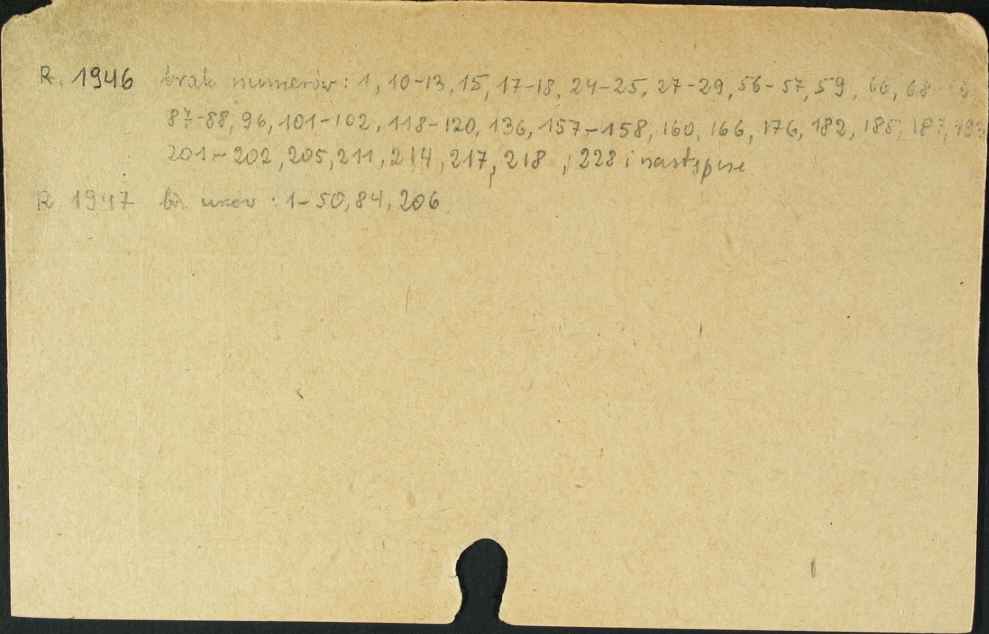 R. 1946 brak numerów: 1, 10-13, 15, 17-18, 24-25, 27-29, 56-57, 59, 66, 68
87-88, 96, 101-102, 118-120, 136, 157-158, 160, 166, 176, 182, 185, 187,
201-202, 205, 211, 214, 217, 218, 228 i następne
R. 1947 br. nrów: 1-50, 84, 206